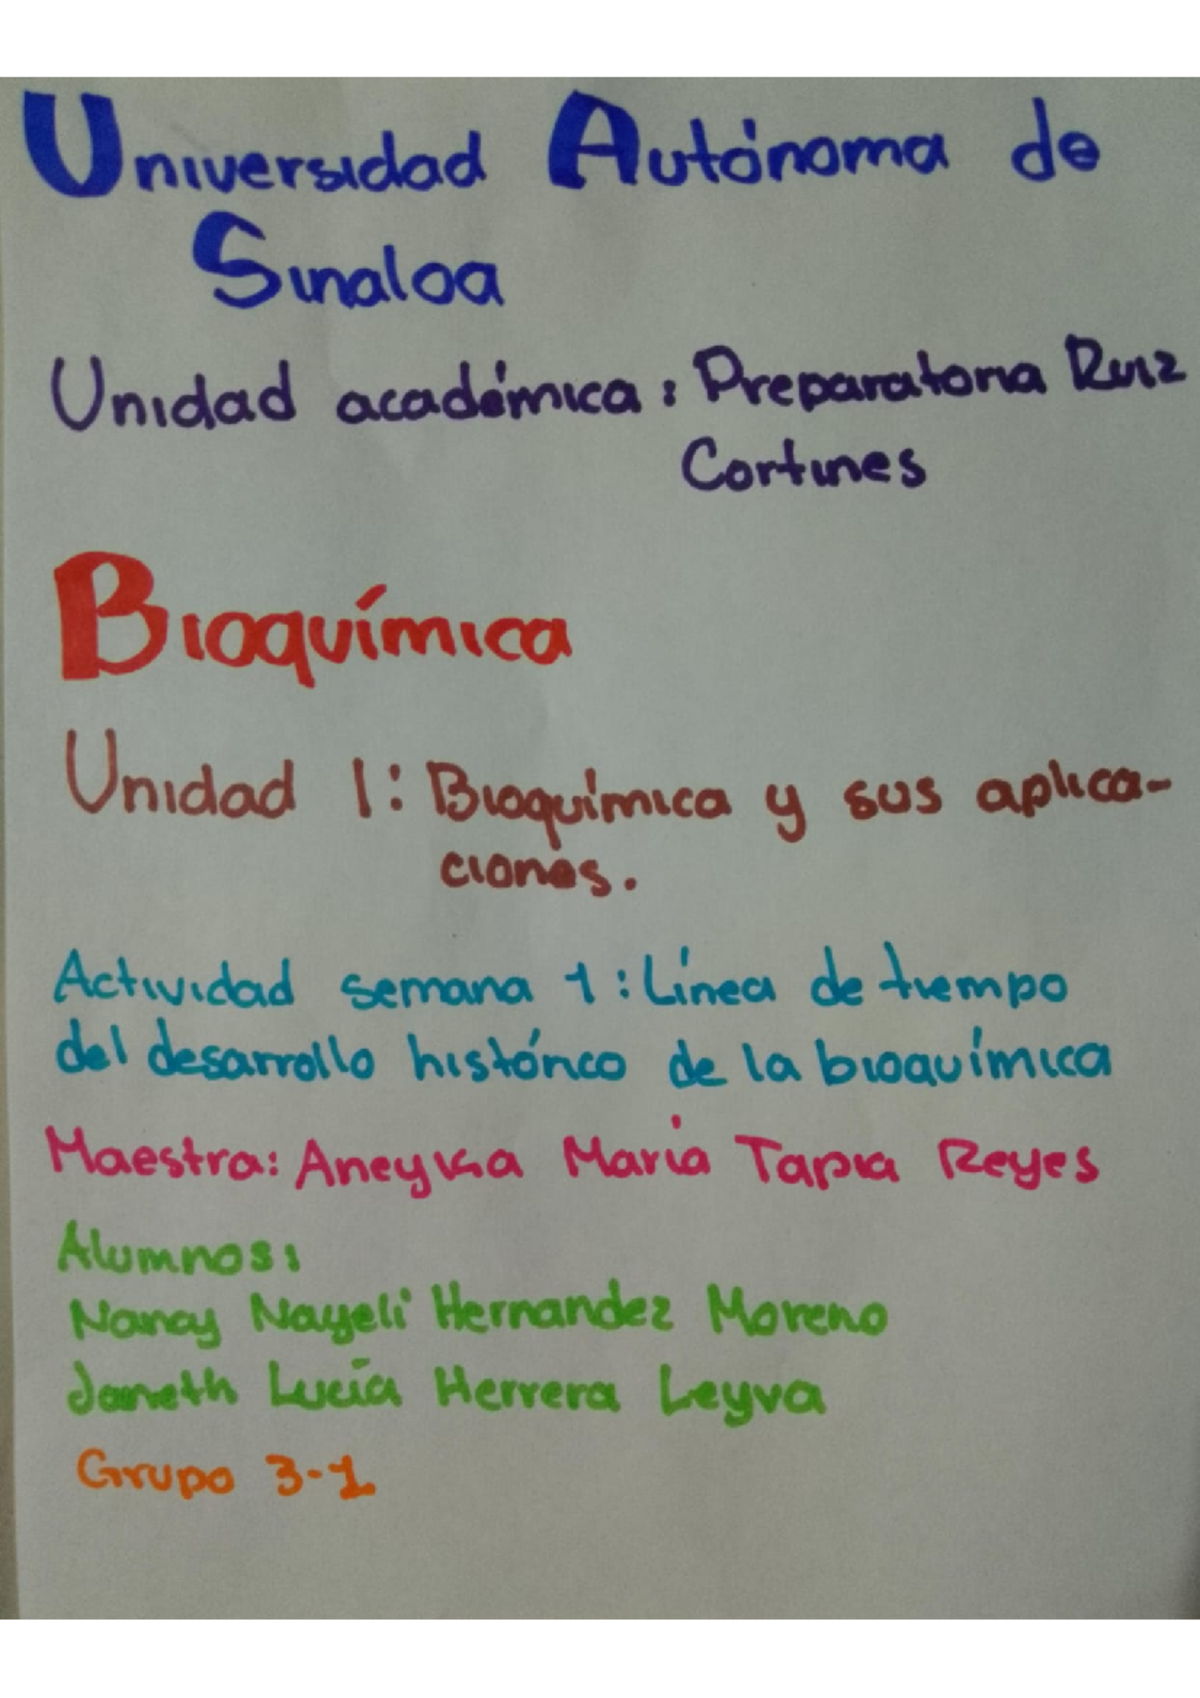 Universidad Autónoma de
Sinaloa
Unidad académica: Preparatoria Ruiz
Cortines
Bioquímica
Unidad 1: Bioquímica y sus aplica-
ciones.
Actividad semana 1: Línea de tiempo
del desarrollo histórico de la bioquímica
Maestra: Aneyka María Tapia Reyes
Alumnos:
Nancy Nayeli Hernandez Moreno
Janeth Lucía Herrera Leyva
Grupo 3-1